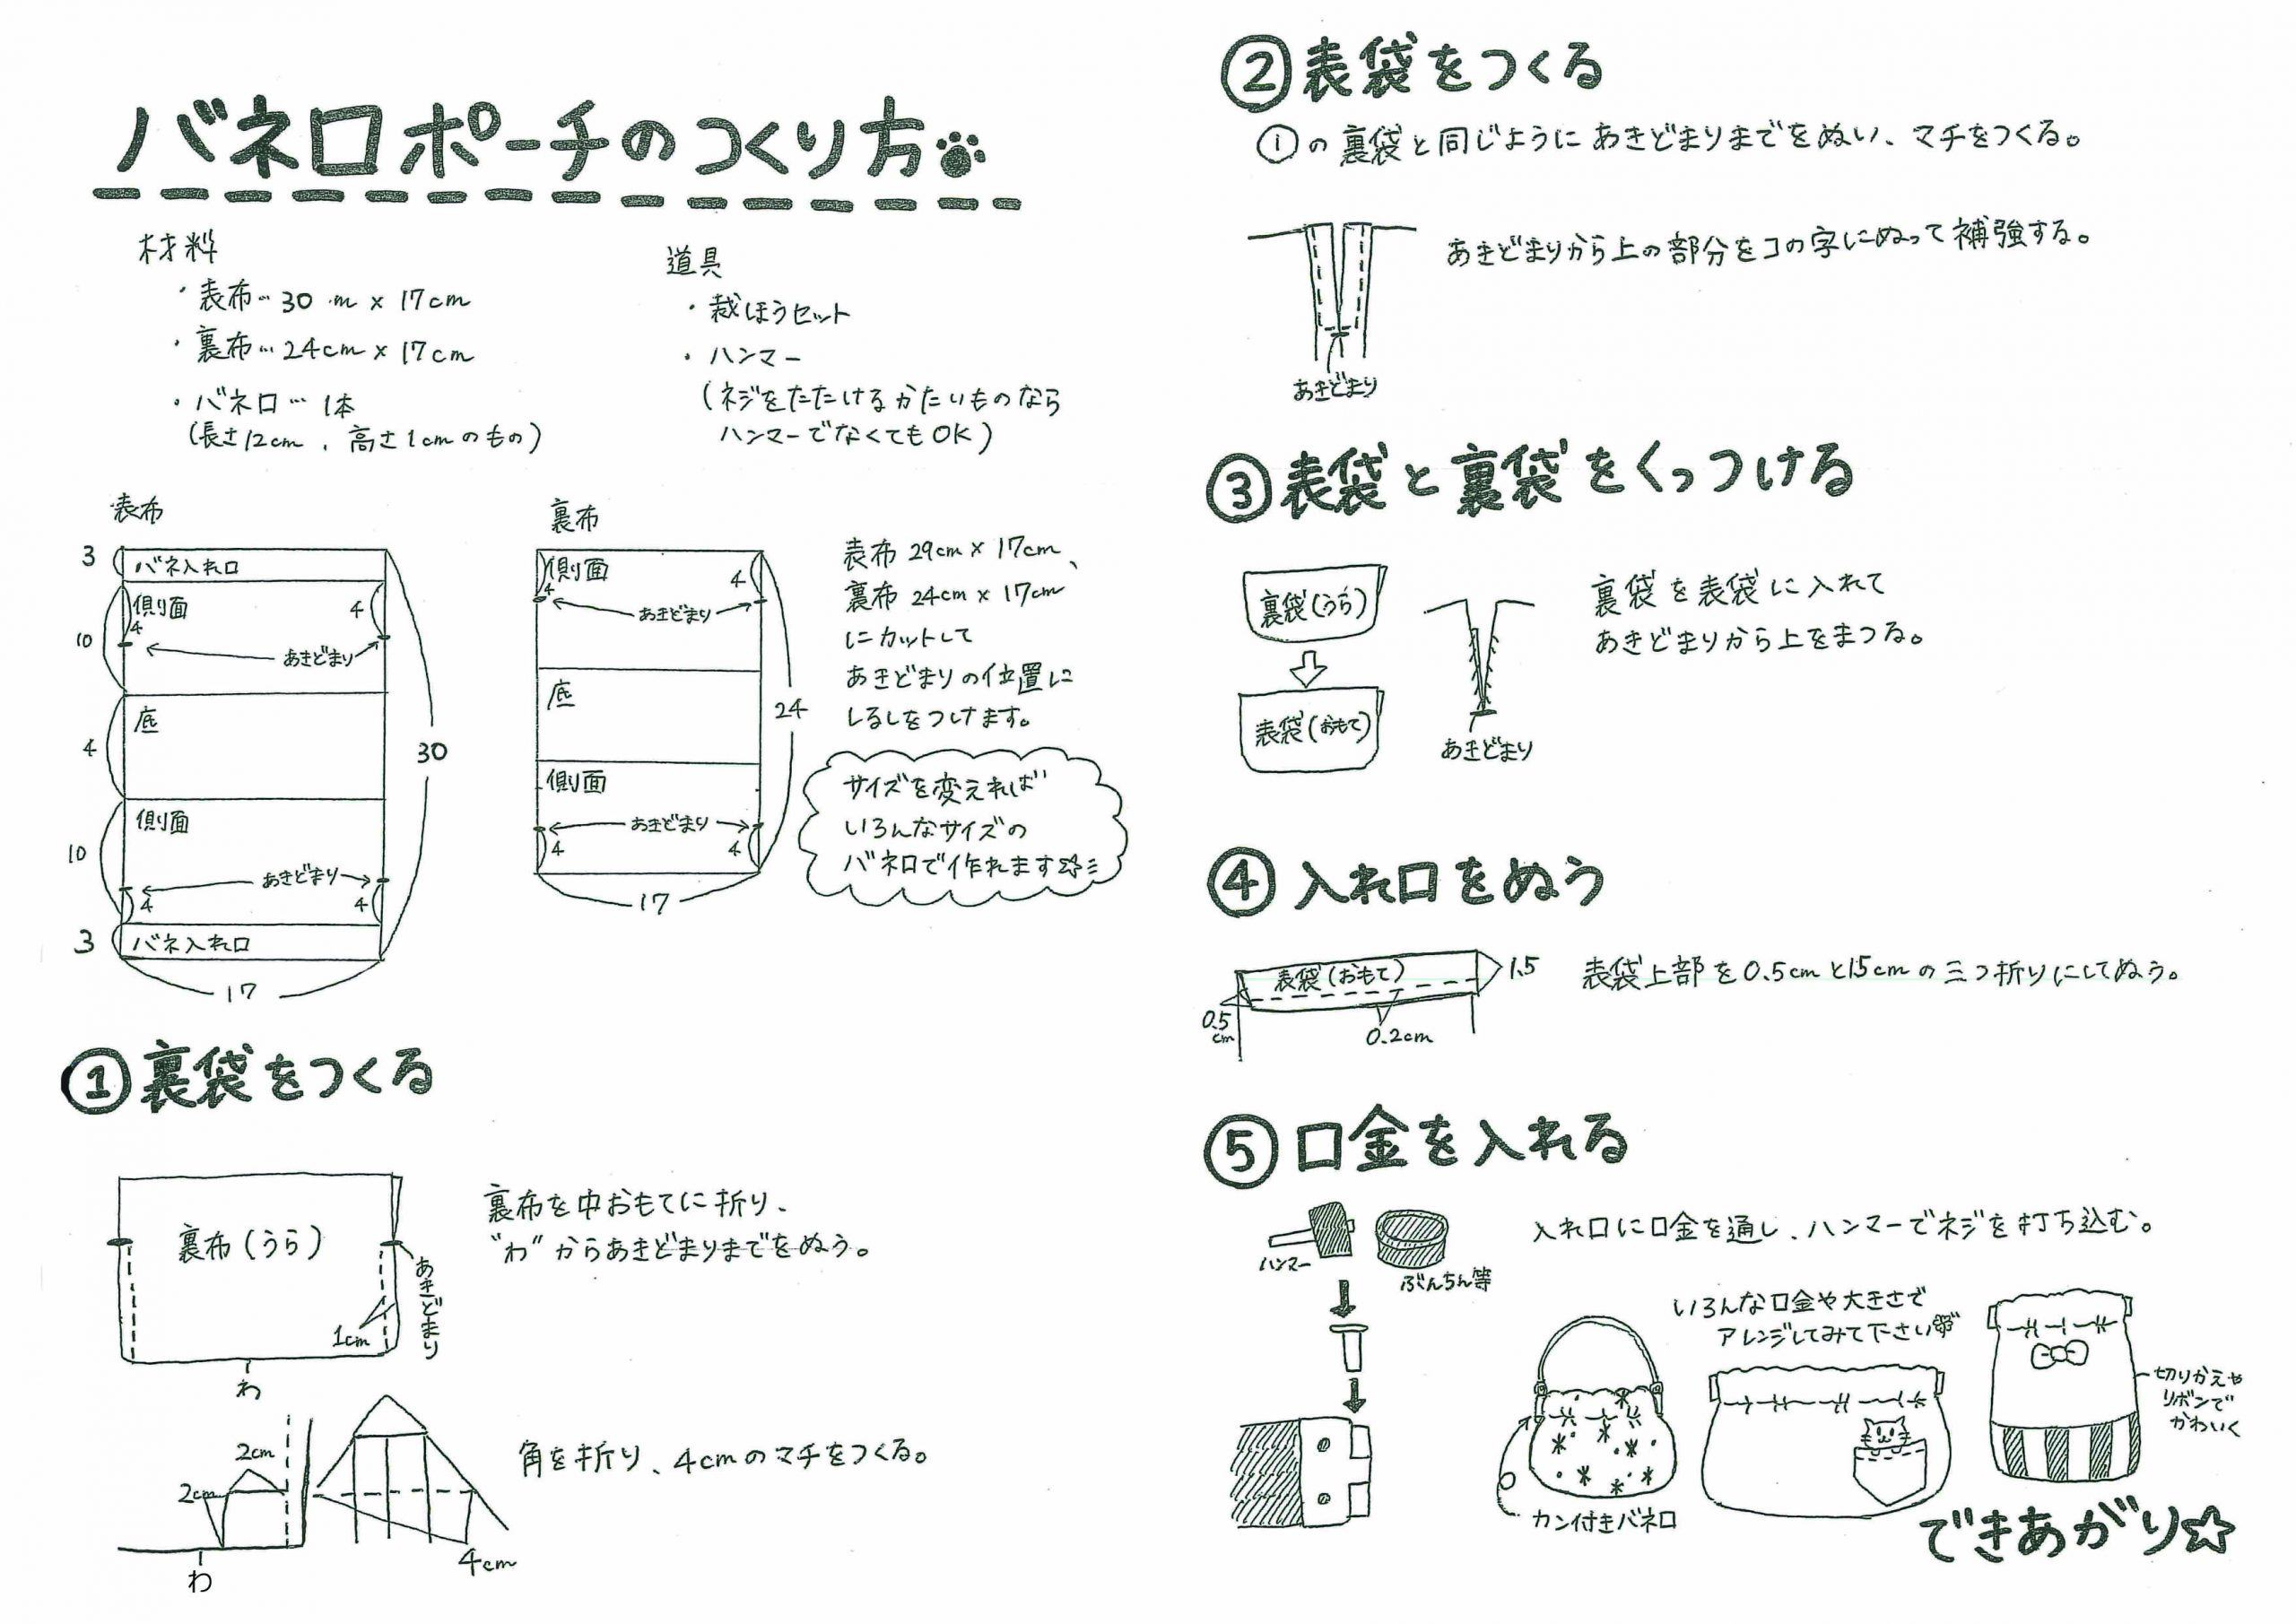 バネ口ポーチのつくり方
材料
・表布…30 m × 17cm
・裏布…24cm × 17cm
・バネ口… 1本
(長さ12cm、高さ1cmのもの)
道具
・裁ほうセット
・ハンマー
(ネジをたたけるかたいものなら
ハンマーでなくてもOK)
表布
3
バネ入れ口
側面
4
4
10
あきどまり
底
4
30
側面
10
あきどまり
4
4
3
バネ入れ口
17
裏布
側面
4
4
あきどまり
底
24
側面
あきどまり
4
4
17
表布 29cm × 17cm、
裏布 24cm × 17cm
にカットして
あきどまりの位置に
しるしをつけます。
サイズを変えれば
いろんなサイズの
バネ口で作れます☆
①裏袋をつくる
裏布(うら)
あきどまり
1cm
わ
裏布を中おもてに折り、
"わ"からあきどまりまでをぬう。
2cm
2cm
わ
4cm
角を折り、4cmのマチをつくる。
②表袋をつくる
①の裏袋と同じようにあきどまりまでをぬい、マチをつくる。
あきどまりから上の部分をコの字にぬって補強する。
あきどまり
③表袋と裏袋をくっつける
裏袋(うら)
表袋(おもて)
あきどまり
裏袋を表袋に入れて
あきどまりから上をまつる。
④入れ口をぬう
表袋(おもて)
1.5
0.5
cm
0.2cm
表袋上部を0.5cmと15cmの三つ折りにしてぬう。
⑤口金を入れる
ハンマー
ぶんちん等
入れ口に口金を通し、ハンマーでネジを打ち込む。
いろんな口金や大きさで
アレンジしてみて下さい
カン付きバネ口
切りかえや
リボンで
かわいく
できあがり☆